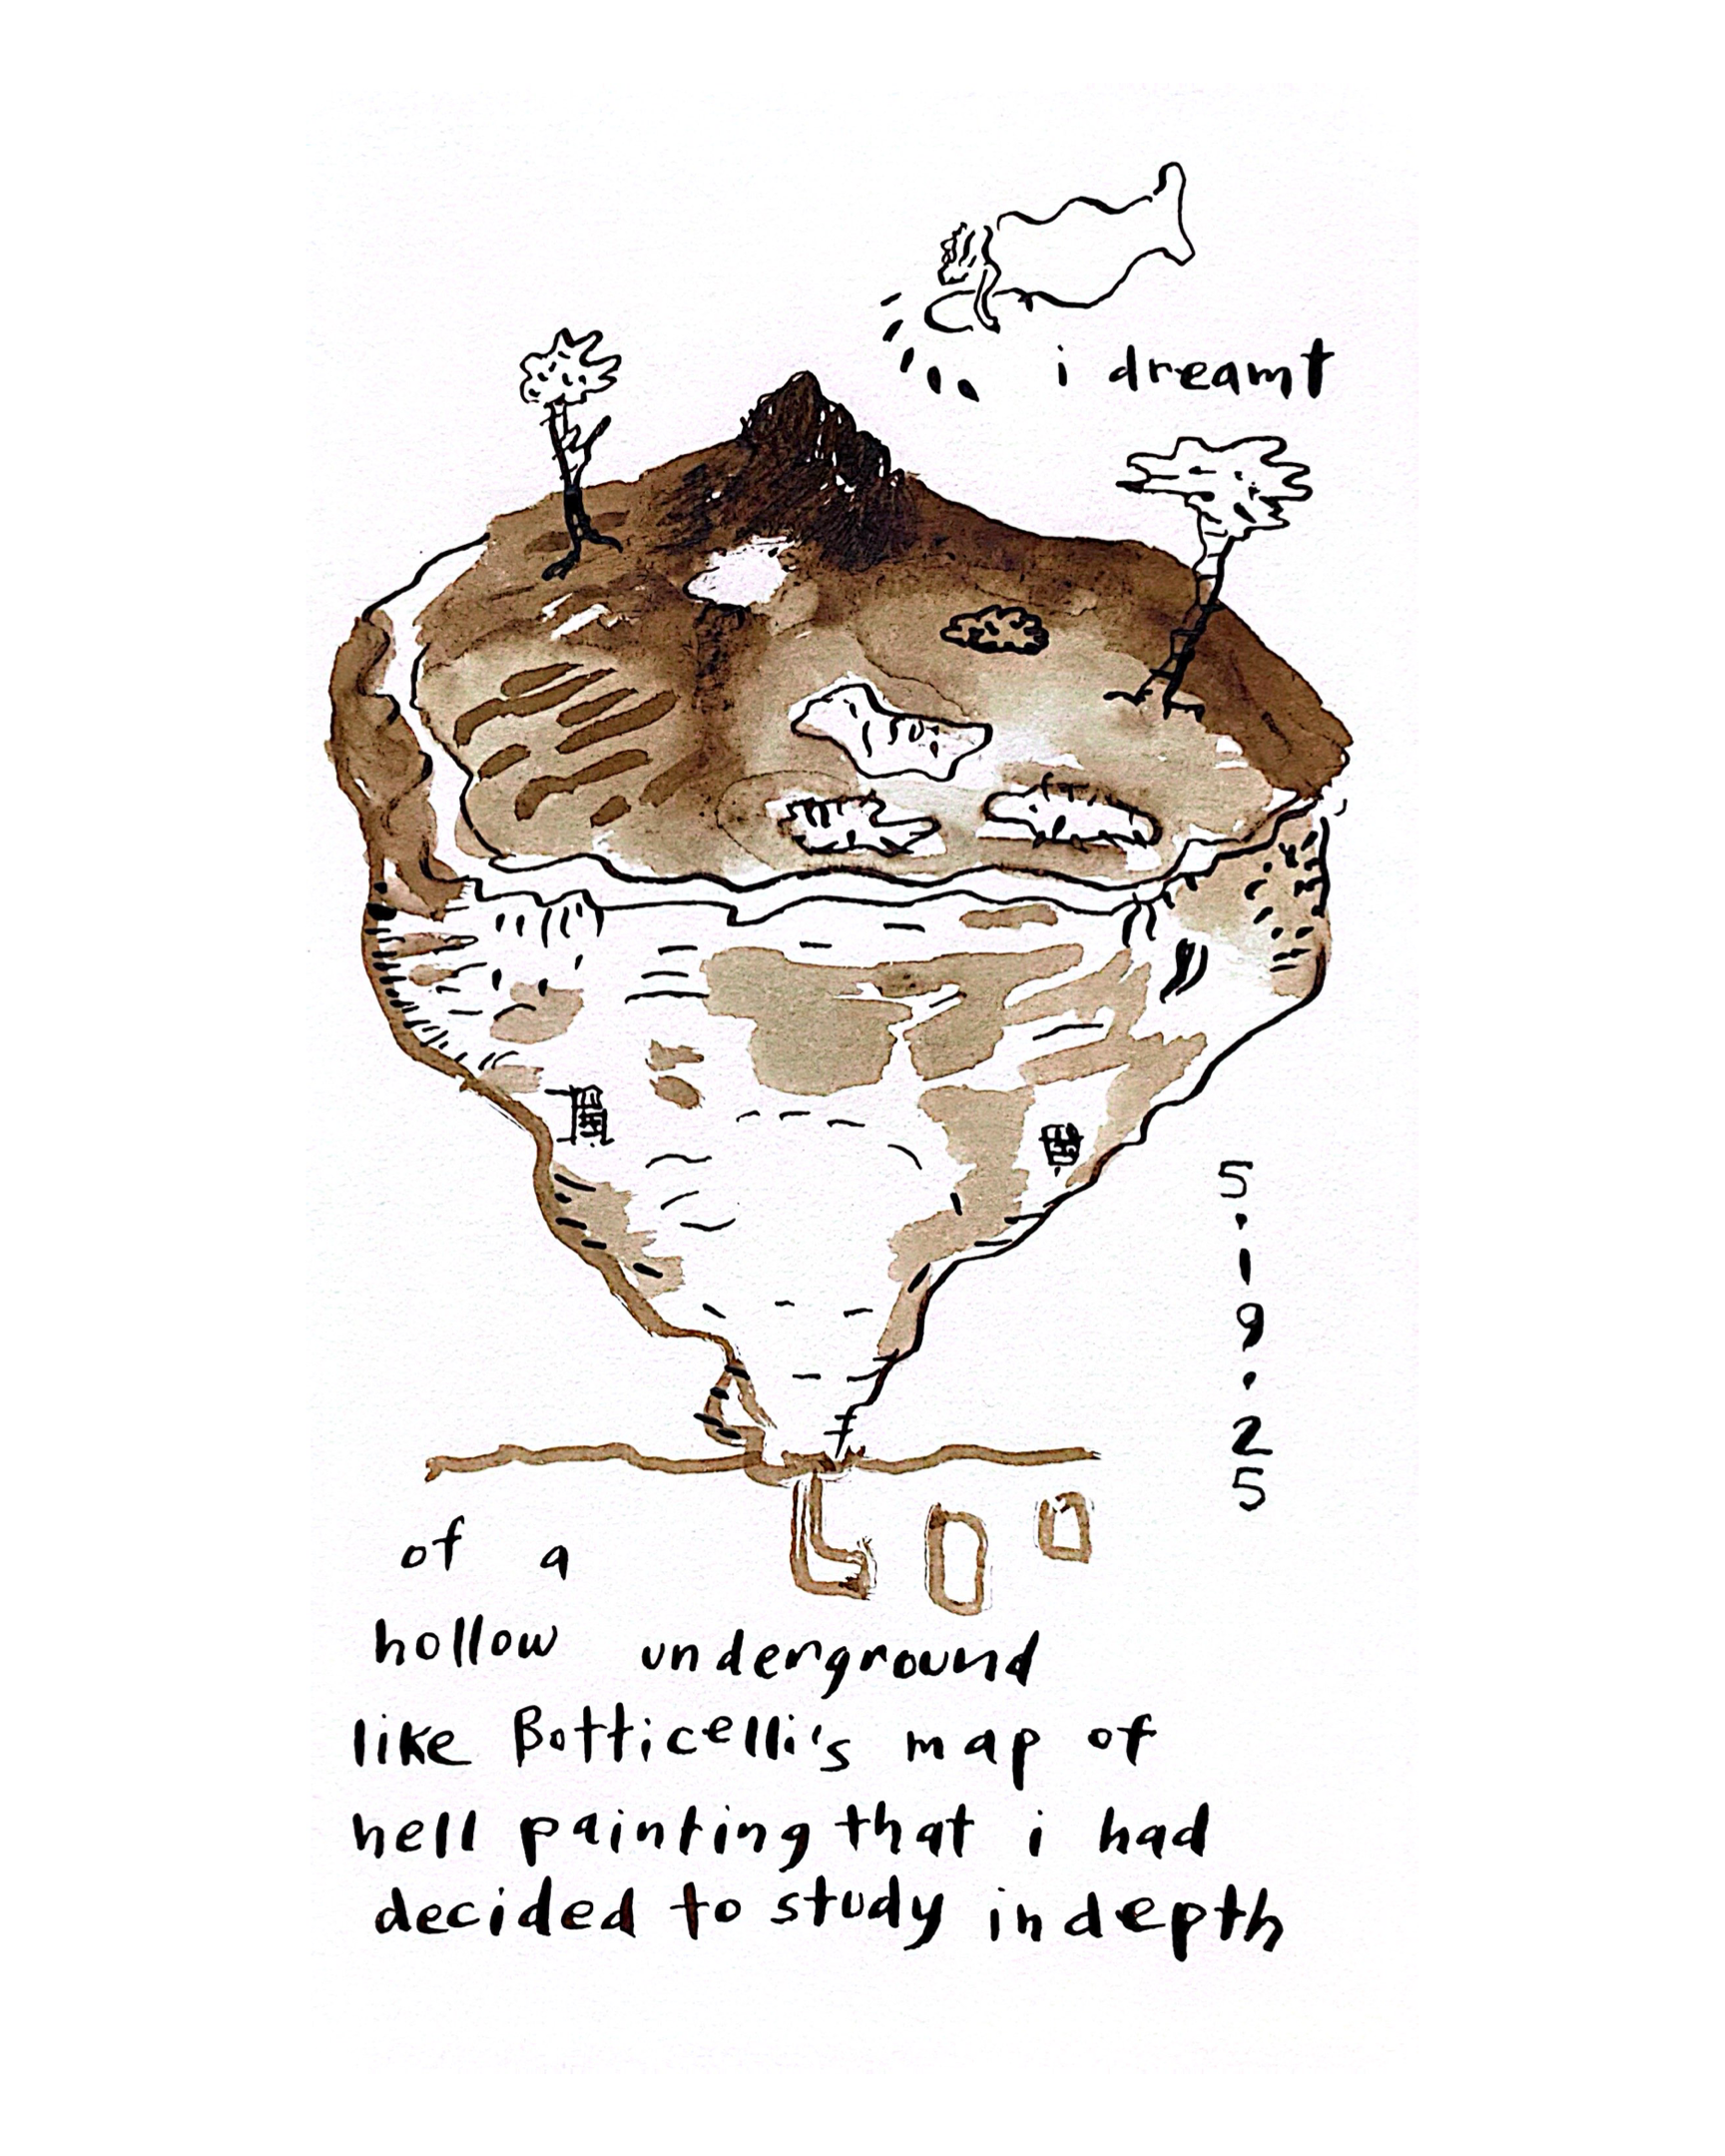 i dreamt
5.19.25
of a
hollow underground
like Botticelli's map of
hell painting that i had
decided to study in depth